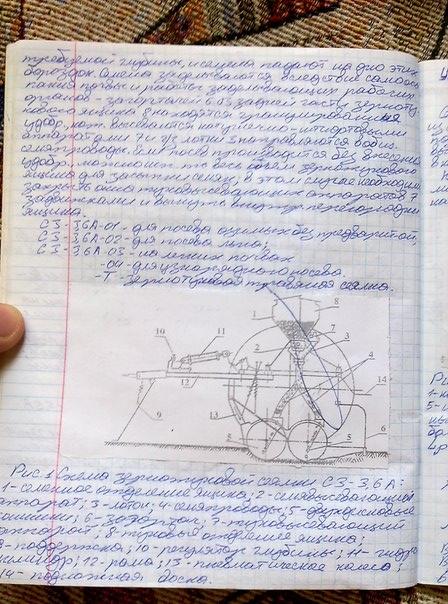 требуемой глубины, и семена падают на дно этих
бороздок. Семена заделываются вследствие самоосы-
пания почвы и работы заделывающих рабочих
органов - загортачей 6. В задней части зернотук-
ового ящика 8 находятся гранулированные
удобр., кот. высеваются катушечно-штифтовыми
аппарат. 7 и по лотк. 3 направляются в общ.
семяпроводы. Если посев производится без внесения
удобр., можно использ. весь объем зернотукового
ящика для засыпки семян, в этом случае необходимо
закрыть окна туковысевающих аппаратов 7
задвижками и вынуть внутр. перегородки
ящика.
СЗ-3,6А-01 - для посева озимых без предварит.
СЗ-3,6А-02 - для посева льна;
СЗ-3,6А-03 - на легких почвах
-04 - для узкорядного посева.
-Т - зернотуковая травяная сеялка.
8
1
7
10
11
2
3
4
12
14
9
13
5
6
Рис. 1 Схема зернотуковой сеялки СЗ-3,6А:
1 - семенное отделение ящика; 2 - семявысевающий
аппарат; 3 - лоток; 4 - семяпроводы; 5 - двухдисковые
сошники; 6 - загортач; 7 - туковысевающий
аппарат; 8 - туковое отделение ящика;
9 - поддержка; 10 - регулятор глубины; 11 - гидро-
цилиндр; 12 - рама; 13 - пневматическое колесо;
14 - подножная доска.